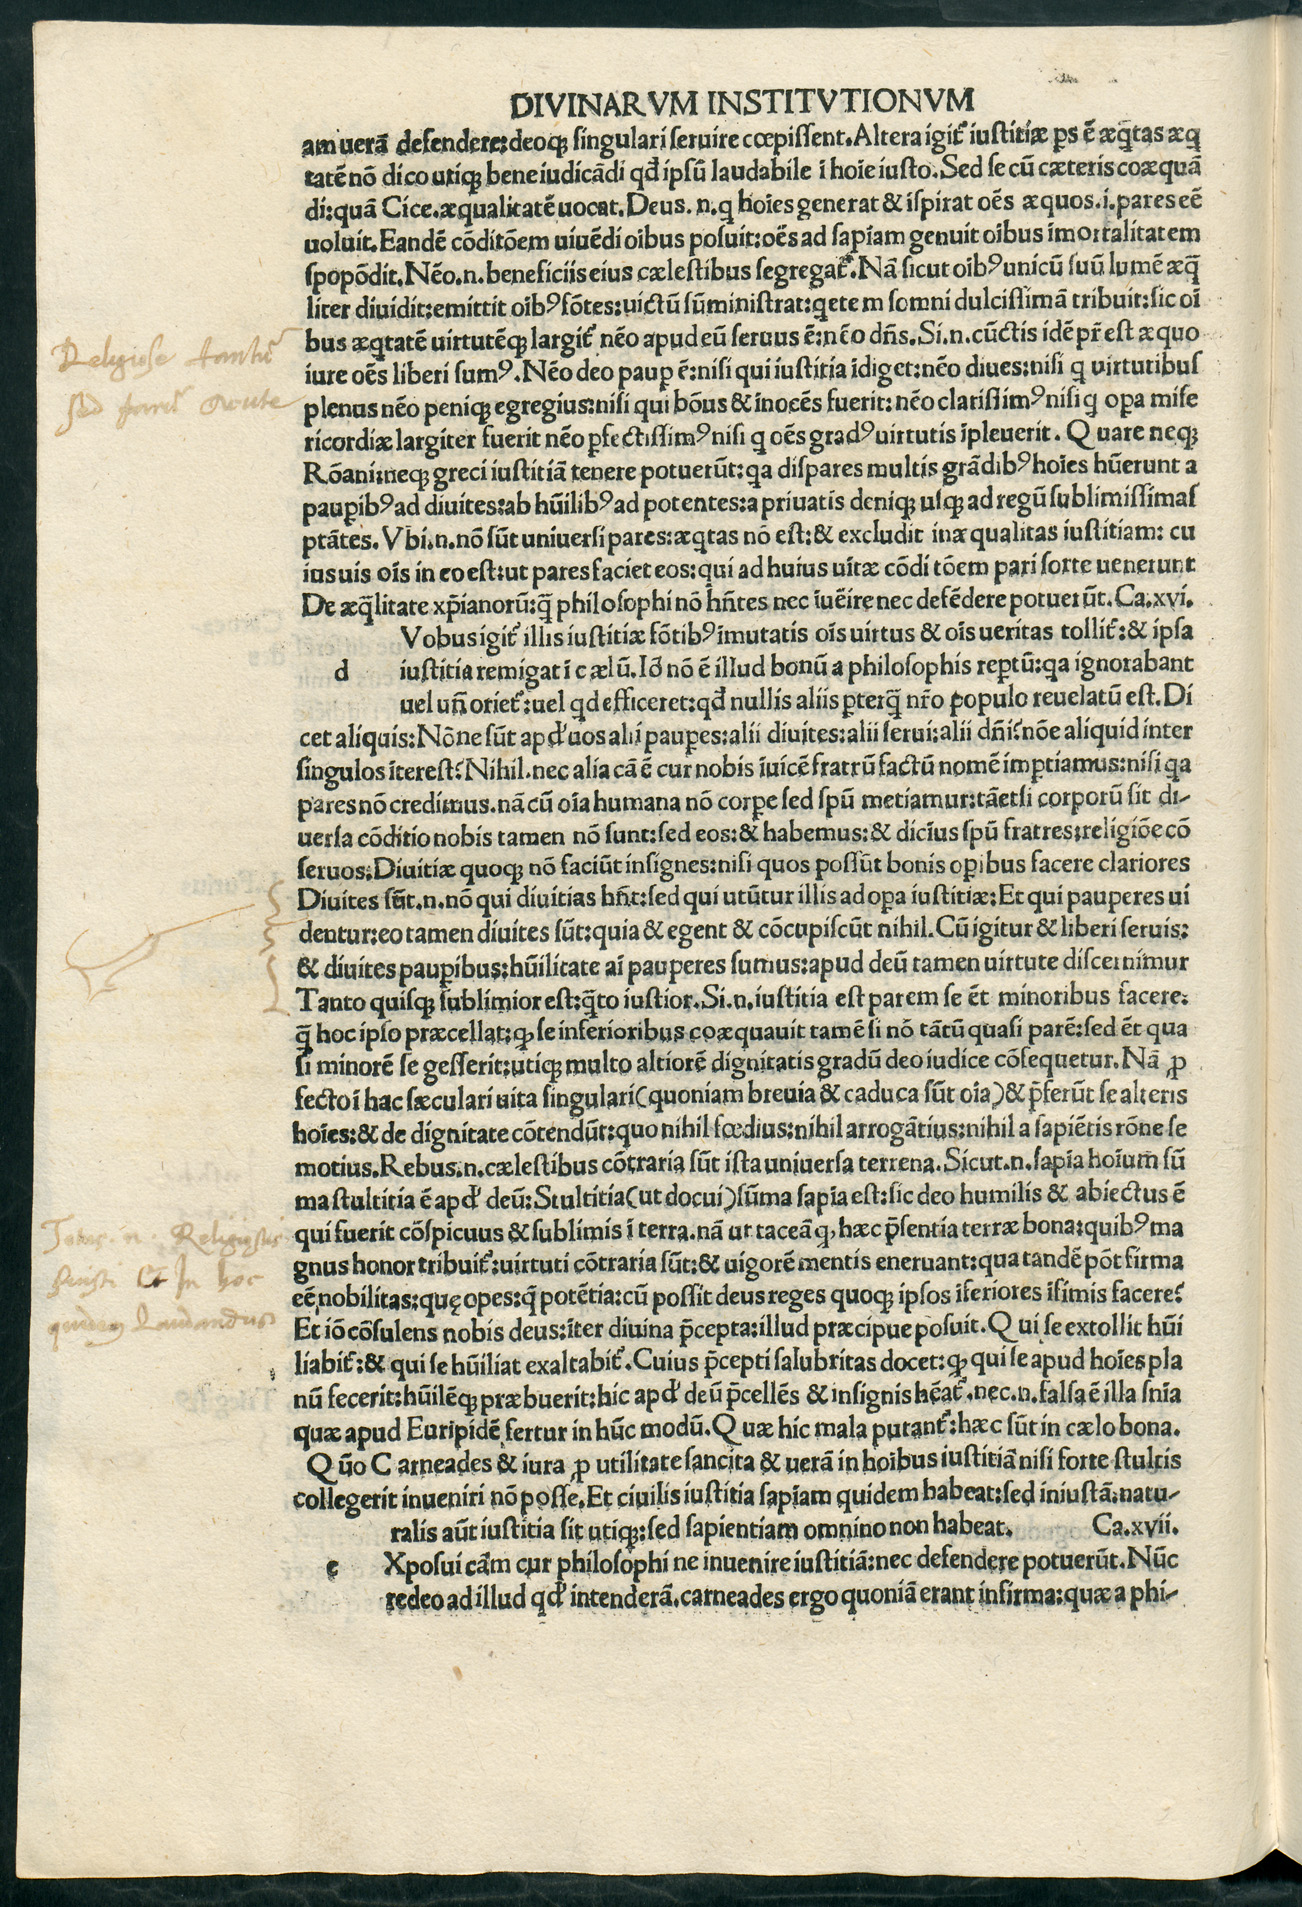 DIVINARVM INSTITVTIONVM
am uerā defendere: deoqꝫ singulari seruire cœpissent. Altera igit᷑ iustitiæ ꝑs ē æq̄tas æq̄
tatē nō dico utiqꝫ bene iudicādi qđ ipsū laudabile ī hoīe iusto. Sed se cū cæteris coæquā
di: quā Cice. æqualitatē uocat. Deus. n. q hoīes generat & ispirat oēs æquos. i. pares eē
uoluit. Eandē cōditōem uiuēdi oibus posuit: oēs ad sapīam genuit oībus īmortalitatem
spopōdit. Nēo. n. beneficiis eius cælestibus segregat᷑. Nā sicut oībꝰ unicū suū lumē æq̄
liter diuidit: emittit oībꝰ fōtes: uictū sūministrat: qetem somni dulcissimā tribuit: sic oī
bus æq̄tatē uirtutēqꝫ largit᷑ nēo apud eū seruus ē: nēo dn̄s. Si. n. cūctis idē pr̄ est æquo
iure oēs liberi sumꝰ. Nēo deo paup̄ ē: nisi qui iustitia īdiget: nēo diues: nisi q uirtutibus
plenus nēo peniqꝫ egregius: nisi qui bōus & īnocēs fuerit: nēo clarissimꝰ nisi q oꝑa mise
ricordiæ largiter fuerit nēo ꝑfectissimꝰ nisi q oēs gradꝰ uirtutis īpleuerit. Quare neqꝫ
Rōani: neqꝫ greci iustitiā tenere potuerūt: qa dispares multis grādibꝰ hoīes hūerunt a
pauꝑibꝰ ad diuites: ab hūilibꝰ ad potentes: a priuatis deniqꝫ usqꝫ ad regū sublimissimas
ptātes. Vbi. n. nō sūt uniuersi pares: æq̄tas nō est: & excludit inæqualitas iustitiam: cu
ius uis oīs in eo est: ut pares faciet eos: qui ad huius uitæ cōditōem pari sorte uenerunt
De æq̄litate xp̄ianorū: q̄ philosophi nō hn̄tes nec īuēire nec defēdere potuerūt. Ca. xvi.
Vobus igit᷑ illis iustitiæ fōtibꝰ īmutatis oīs uirtus & oīs ueritas tollit᷑: & ipsa
d iustitia remigat ī cælū. Iō nō ē illud bonū a philosophis reptū: qa ignorabant
uel un̄ oriet᷑: uel qd efficeret: qđ nullis aliis p̄terq̄ nr̄o populo reuelatū est. Di
cet aliquis: Nōne sūt apđ uos alii pauꝑes: alii diuites: alii serui: alii dn̄i? nōe aliquid inter
singulos īterest? Nihil. nec alia cā ē cur nobis īuicē fratrū factū nomē imꝑtiamus: nisi qa
pares nō credimus. nā cū oīa humana nō corpe sed spū metiamur: tāetsi corporū sit di-
uersa cōditio nobis tamen nō sunt: sed eos: & habemus: & dicīus spū fratres: religiōe cō
seruos. Diuitiæ quoqꝫ nō faciūt insignes: nisi quos possūt bonis oꝑibus facere clariores
Diuites sūt. n. nō qui diuitias hn̄t: sed qui utūtur illis ad oꝑa iustitiæ: Et qui pauperes ui
dentur: eo tamen diuites sūt: quia & egent & cōcupiscūt nihil. Cū igitur & liberi seruis:
& diuites pauꝑibus: hūilitate aī pauperes sumus: apud deū tamen uirtute discernimur
Tanto quisqꝫ sublimior est: q̄to iustior. Si. n. iustitia est parem se ēt minoribus facere:
q̄ hoc ipso præcellat: qꝫ se inferioribus coæquauit tamē si nō tātū quasi parē: sed ēt qua
si minorē se gesserit: utiqꝫ multo altiorē dignitatis gradū deo iudice cōsequetur. Nā ꝓ
fecto ī hac sæculari uita singulari (quoniam breuia & caduca sūt oīa) & p̄ferūt se alteris
hoīes: & de dignitate cōtendūt: quo nihil fœdius: nihil arrogātius: nihil a sapiētis rōne se
motius. Rebus. n. cælestibus cōtraria sūt ista uniuersa terrena. Sicut. n. sapīa hoīum sū
ma stultitia ē apđ deū: Stultitia (ut docui) sūma sapīa est: sic deo humilis & abiectus ē
qui fuerit cōspicuus & sublimis ī terra. nā ut taceā q, hæc p̄sentia terræ bona: quibꝰ ma
gnus honor tribuit᷑: uirtuti cōtraria sūt: & uigorē mentis eneruant: qua tandē pōt firma
eē nobilitas: quę opes: q̄ potētia: cū possit deus reges quoqꝫ ipsos īferiores īfimis facere?
Et iō cōsulens nobis deus: īter diuina p̄cepta: illud præcipue posuit. Qui se extollit hūi
liabit᷑: & qui se hūiliat exaltabit᷑. Cuius p̄cepti salubritas docet: qꝫ qui se apud hoīes pla
nū fecerit: hūilēqꝫ præbuerit: hic apđ deū p̄cellēs & insignis hēat᷑. nec. n. falsa ē illa snīa
quæ apud Euripidē fertur in hūc modū. Quæ hic mala putant᷑: hæc sūt in cælo bona.
Qūo Carneades & iura ꝓ utilitate sancita & uerā in hoībus iustitiā nisi forte stultis
collegerit inueniri nō posse. Et ciuilis iustitia sapīam quidem habeat: sed iniustā: natu-
ralis aūt iustitia sit utiqꝫ: sed sapientiam omnino non habeat. Ca. xvii.
e Xposui cām cur philosophi ne inuenire iustitiā: nec defendere potuerūt. Nūc
redeo ad illud qđ intenderā. carneades ergo quoniā erant infirma: quæ a phi-
Religiose
sed
Religiosis
& In hoc
quidem Laudandus